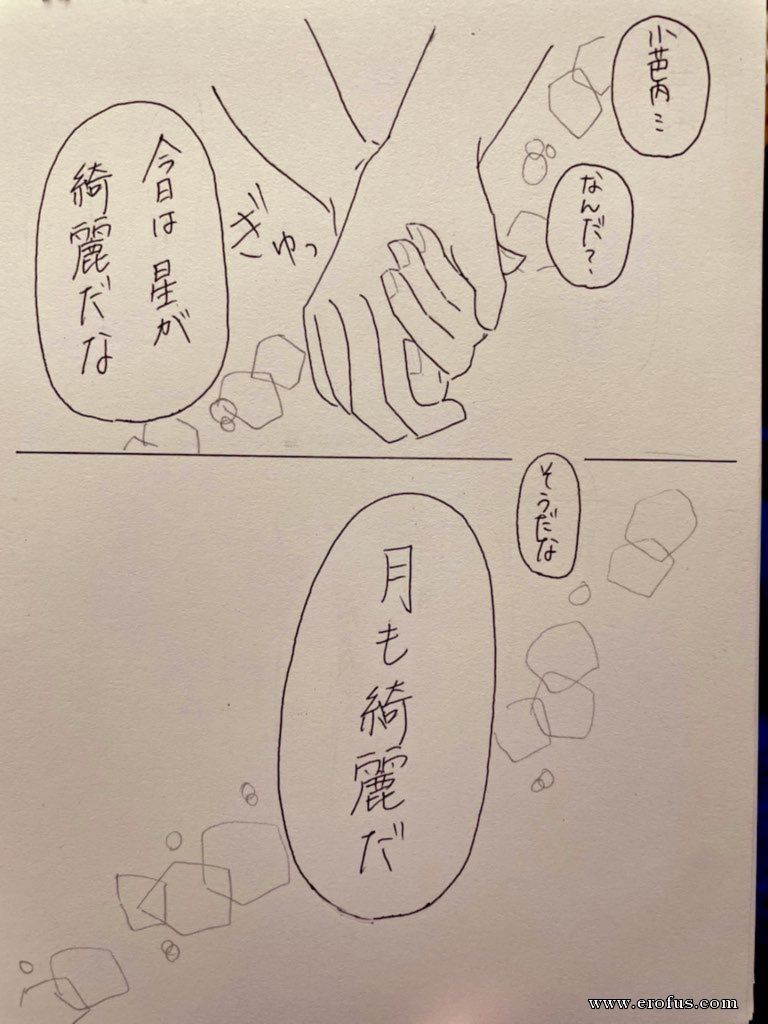 小芭内…
なんだ?
ぎゅっ
今日は星が
綺麗だな
そうだな
月も綺麗だ
www.erofus.com